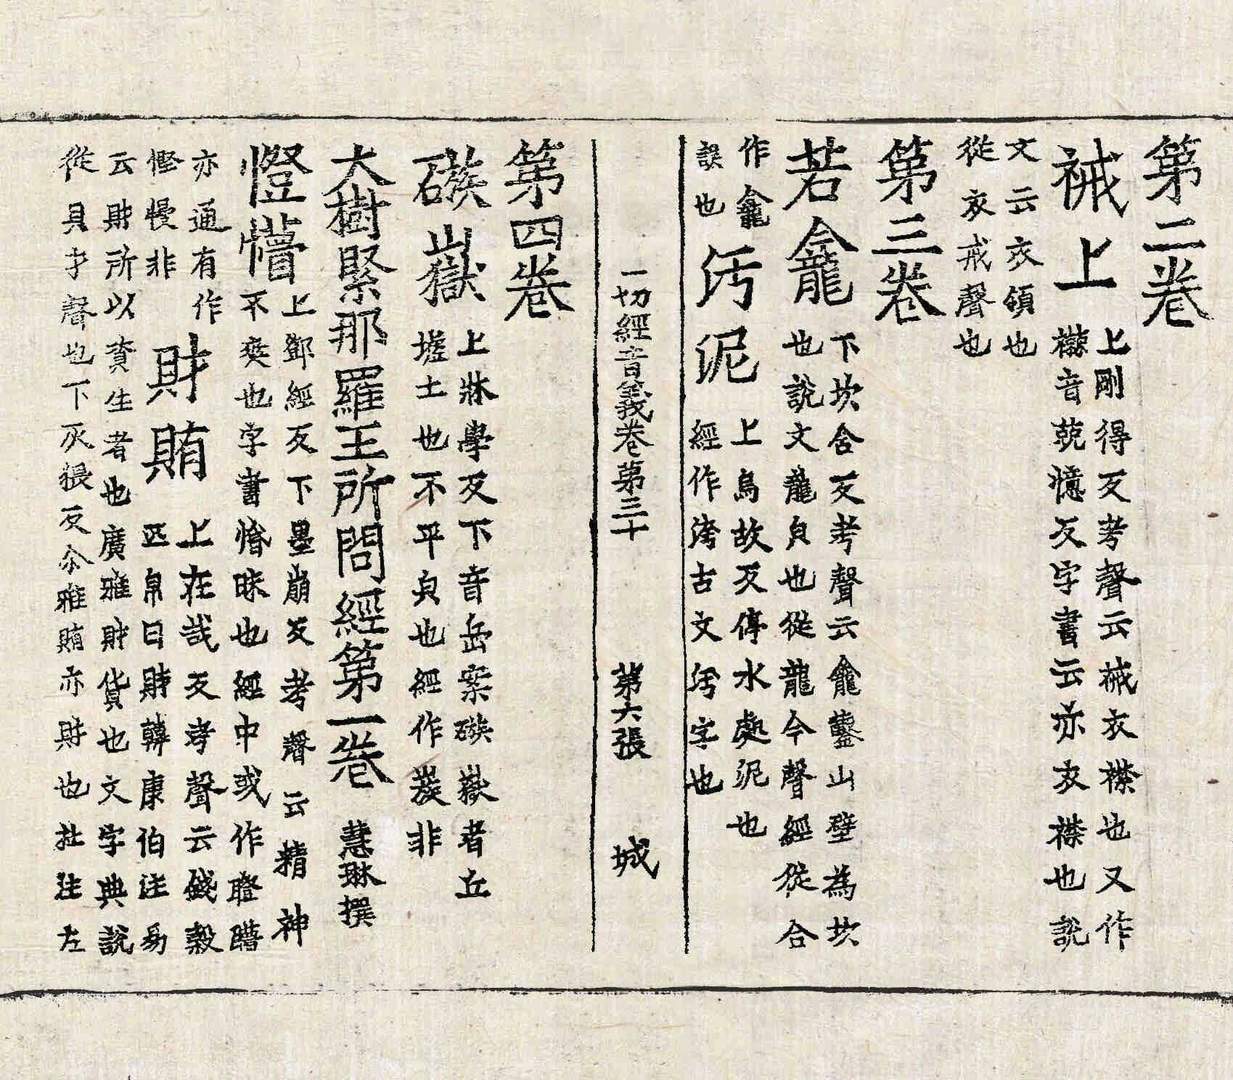 第二卷
裓上上剛得反考聲云裓衣襟也又作
𧝬音兢憶反字書云亦衣襟也說
文云衣領也
從衣戒聲也
第三卷
若龕下坎含反考聲云龕鑿山壁為坎
也說文龍皃也從龍今聲經從合
作龕
誤也
污泥上烏故反停水處泥也
經作洿古文汚字也
一切經音義卷第三十 第六張 城
第四卷
磙山嶽上牀學反下音岳案磙嶽者丘
墟土也不平皃也經作蔟非
大樹緊那羅王所問經第一卷 慧琳撰
憕懵上鄧經反下墨崩反考聲云精神
不爽也字書惛昧也經中或作瞪矒
亦通有作
慳慢非
財賄上在哉反考聲云錢穀
匹帛曰財韓康伯注易
云財所以資生者也廣雅財貨也文字典說
從貝才聲也下灰猥反尒雅賄亦財也杜注左